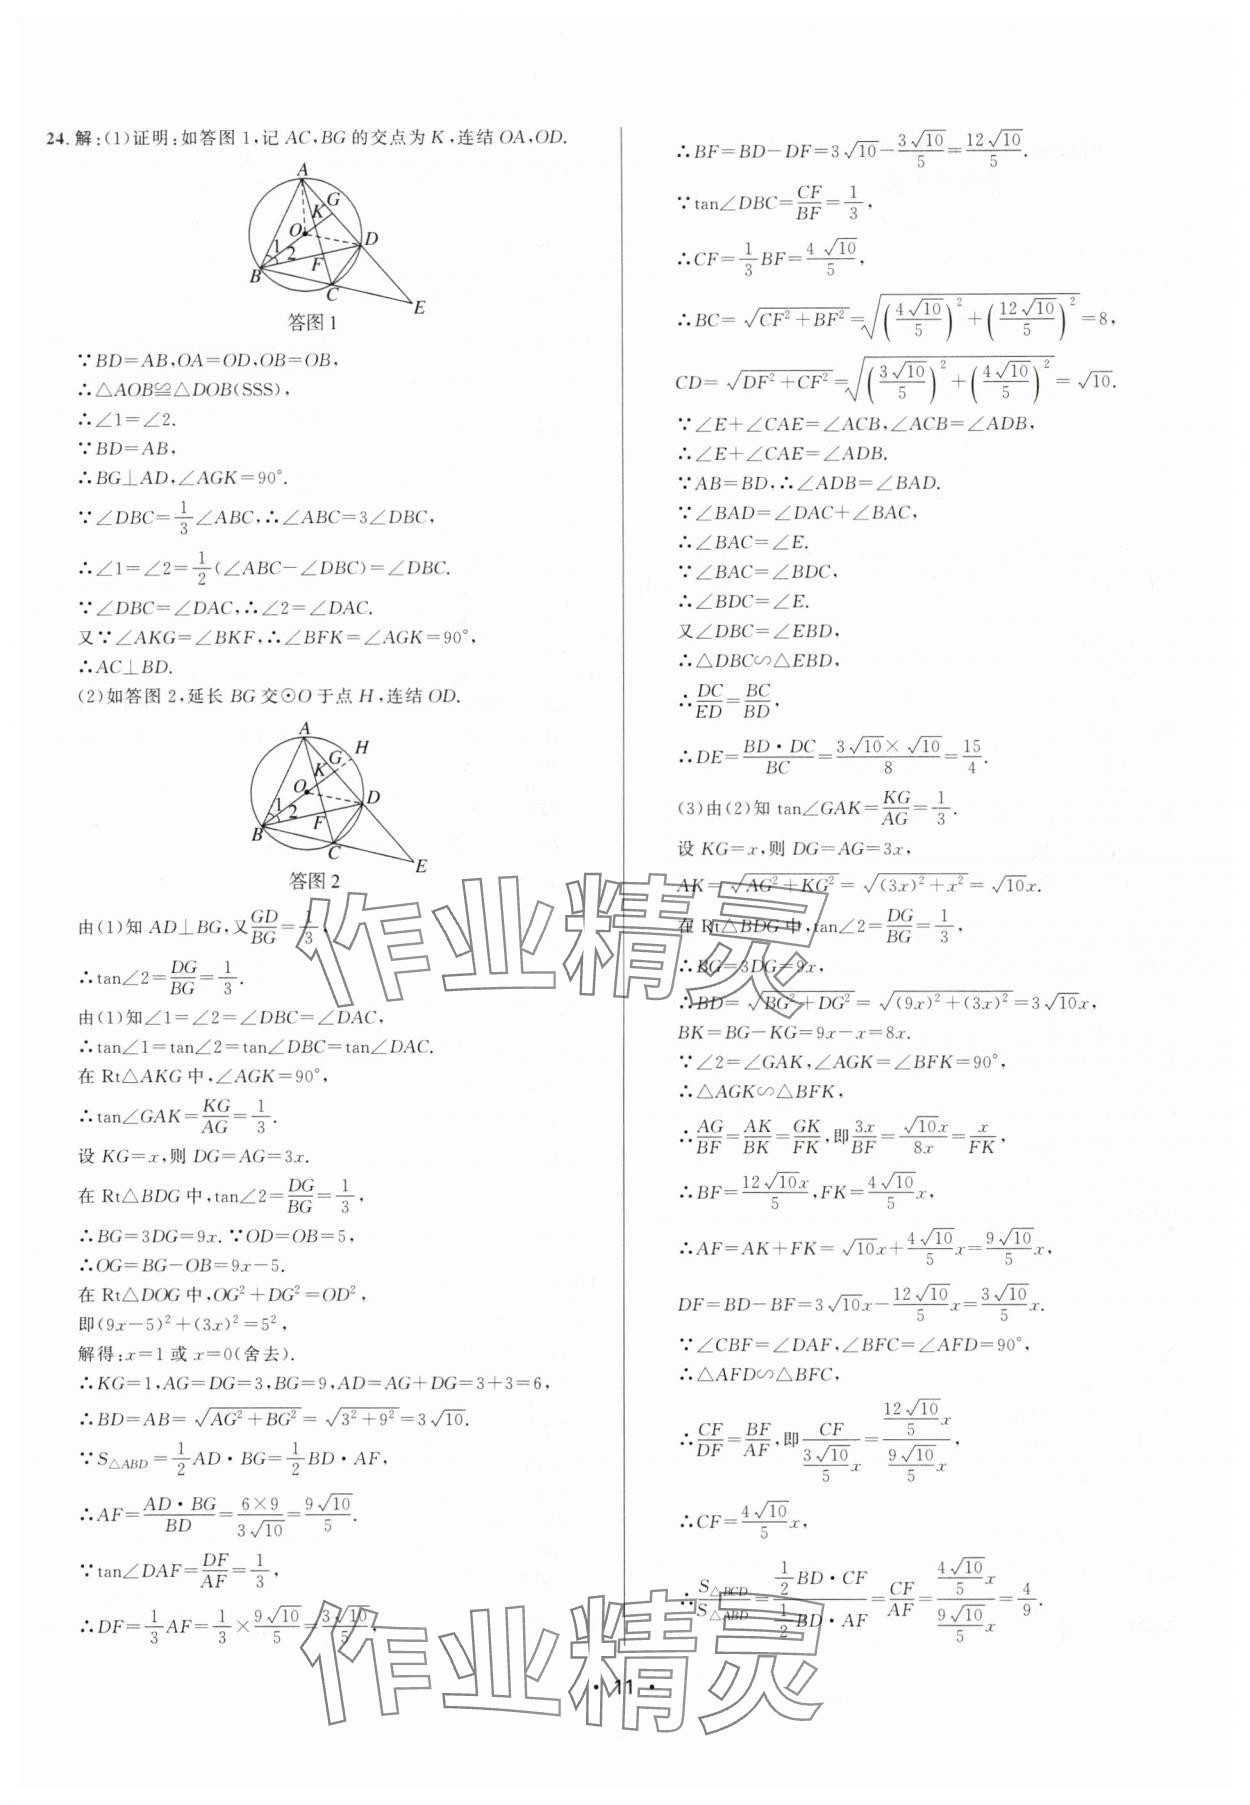 24. 解:(1)证明:如答图 1,记 AC,BG 的交点为 K,连结 OA,OD.
A
G
K
O
D
1
2
F
B
C
E
答图 1
∵BD=AB,OA=OD,OB=OB,
∴△AOB≌△DOB(SSS),
∴∠1=∠2.
∵BD=AB,
∴BG⊥AD,∠AGK=90°.
∵∠DBC=1/3∠ABC,∴∠ABC=3∠DBC,
∴∠1=∠2=1/2(∠ABC-∠DBC)=∠DBC.
∵∠DBC=∠DAC,∴∠2=∠DAC.
又∵∠AKG=∠BKF,∴∠BFK=∠AGK=90°,
∴AC⊥BD.
(2)如答图 2,延长 BG 交⊙O 于点 H,连结 OD.
A
H
G
K
O
D
1
2
F
B
C
E
答图 2
由(1)知 AD⊥BG,又GD/BG=1/3,
∴tan∠2=DG/BG=1/3.
由(1)知∠1=∠2=∠DBC=∠DAC,
∴tan∠1=tan∠2=tan∠DBC=tan∠DAC.
在 Rt△AKG 中,∠AGK=90°,
∴tan∠GAK=KG/AG=1/3.
设 KG=x,则 DG=AG=3x.
在 Rt△BDG 中,tan∠2=DG/BG=1/3,
∴BG=3DG=9x.∵OD=OB=5,
∴OG=BG-OB=9x-5.
在 Rt△DOG 中,OG²+DG²=OD²,
即(9x-5)²+(3x)²=5²,
解得:x=1 或 x=0(舍去).
∴KG=1,AG=DG=3,BG=9,AD=AG+DG=3+3=6,
∴BD=AB=√(AG²+BG²)=√(3²+9²)=3√10.
∵S△ABD=1/2AD·BG=1/2BD·AF,
∴AF=AD·BG/BD=6×9/3√10=9√10/5.
∵tan∠DAF=DF/AF=1/3,
∴DF=1/3AF=1/3×9√10/5=3√10/5,
∴BF=BD-DF=3√10-3√10/5=12√10/5.
∵tan∠DBC=CF/BF=1/3,
∴CF=1/3BF=4√10/5,
∴BC=√(CF²+BF²)=√((4√10/5)²+(12√10/5)²)=8,
CD=√(DF²+CF²)=√((3√10/5)²+(4√10/5)²)=√10.
∵∠E+∠CAE=∠ACB,∠ACB=∠ADB,
∴∠E+∠CAE=∠ADB.
∵AB=BD,∴∠ADB=∠BAD.
∵∠BAD=∠DAC+∠BAC,
∴∠BAC=∠E.
∵∠BAC=∠BDC,
∴∠BDC=∠E.
又∠DBC=∠EBD,
∴△DBC∽△EBD,
∴DC/ED=BC/BD,
∴DE=BD·DC/BC=3√10×√10/8=15/4.
(3)由(2)知 tan∠GAK=KG/AG=1/3.
设 KG=x,则 DG=AG=3x,
AK=√(AG²+KG²)=√((3x)²+x²)=√10x.
在 Rt△BDG 中,tan∠2=DG/BG=1/3,
∴BG=3DG=9x,
∴BD=√(BG²+DG²)=√((9x)²+(3x)²)=3√10x,
BK=BG-KG=9x-x=8x.
∵∠2=∠GAK,∠AGK=∠BFK=90°,
∴△AGK∽△BFK,
∴AG/BF=AK/BK=GK/FK,即3x/BF=√10x/8x=x/FK,
∴BF=12√10x/5,FK=4√10/5x,
∴AF=AK+FK=√10x+4√10/5x=9√10/5x,
DF=BD-BF=3√10x-12√10/5x=3√10/5x.
∵∠CBF=∠DAF,∠BFC=∠AFD=90°,
∴△AFD∽△BFC,
∴CF/DF=BF/AF,即CF/(3√10/5x)=(12√10/5x)/(9√10/5x),
∴CF=4√10/5x,
∴S△BCD/S△ABD=(1/2BD·CF)/(1/2BD·AF)=CF/AF=(4√10/5x)/(9√10/5x)=4/9.
作业精灵
作业精灵
· 11 ·